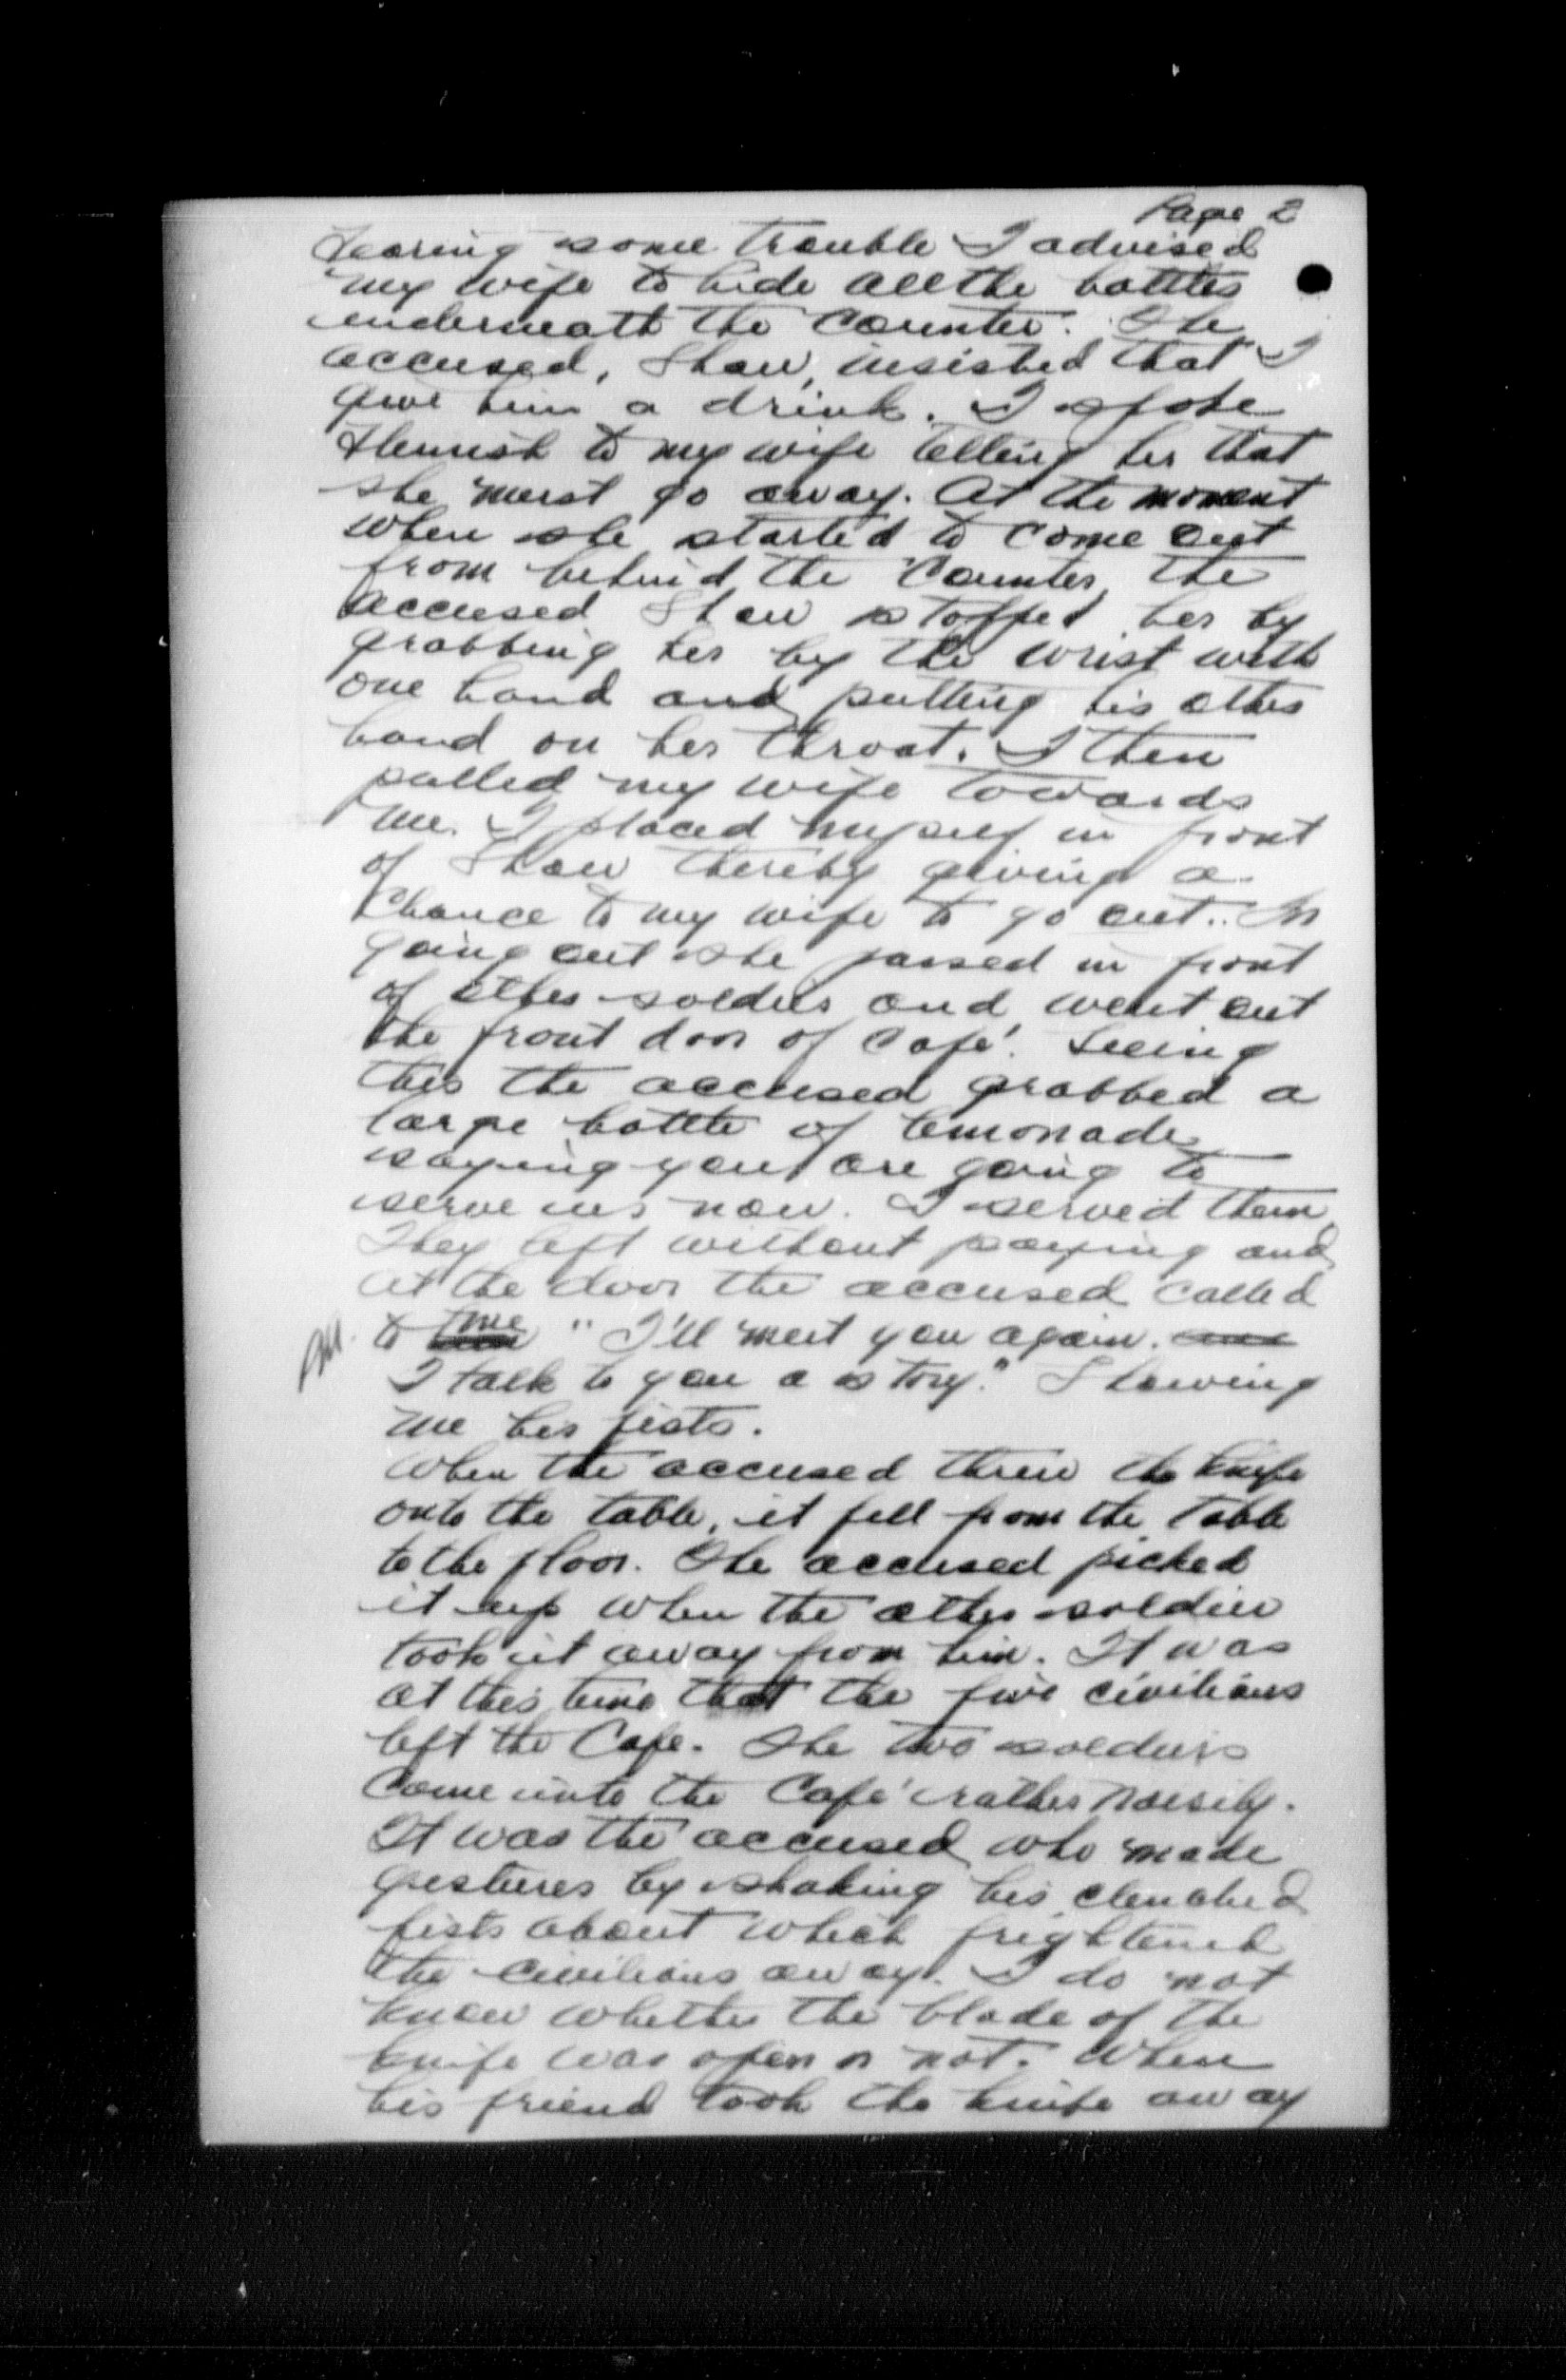 Page 2
Fearing some trouble I advised
my wife to hide all the bottles
underneath the counter. The
accused, Shaw, insisted that I
give him a drink. I spoke
Flemish to my wife telling her that
she must go away. At the moment
when she started to come out
from behind the counter, the
accused Shaw stopped her by
grabbing her by the wrist with
one hand and putting his other
hand on her throat. I then
pulled my wife towards
me. I placed myself in front
of Shaw thereby giving a
chance to my wife to go out. In
going out she passed in front
of other soldier and went out
the front door of Café. Seeing
this the accused grabbed a
large bottle of lemonade
saying you are going to
serve us now. I served them
They left without paying and
at the door the accused called
to me "I'll meet you again.
I talk to you a story." Showing
me his fists.
When the accused threw the knife
onto the table, it fell from the table
to the floor. The accused picked
it up when the other soldier
took it away from him. It was
at this time that the five civilians
left the Cafe. The two soldiers
came into the Café rather noisily.
It was the accused who made
gestures by shaking his clenched
fists about which frightened
the civilians away. I do not
know whether the blade of the
knife was open or not. When
his friend took the knife away